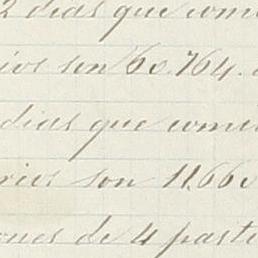 2 dias que come
rios son 60.764.
dias que come
ries son 11.660
ones de 4 parti